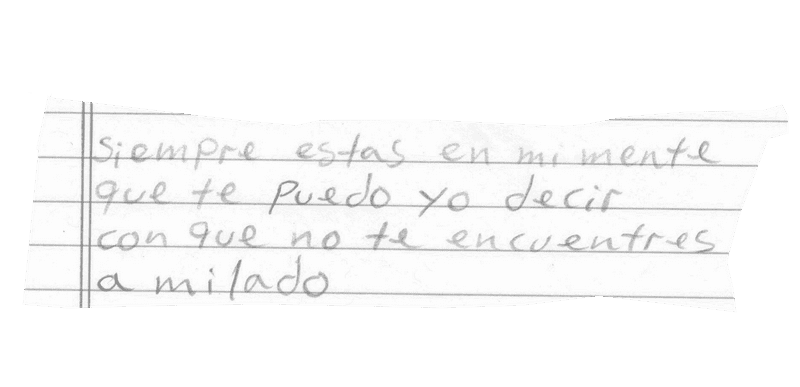 siempre estas en mi mente
que te puedo yo decir
con que no te encuentres
a milado